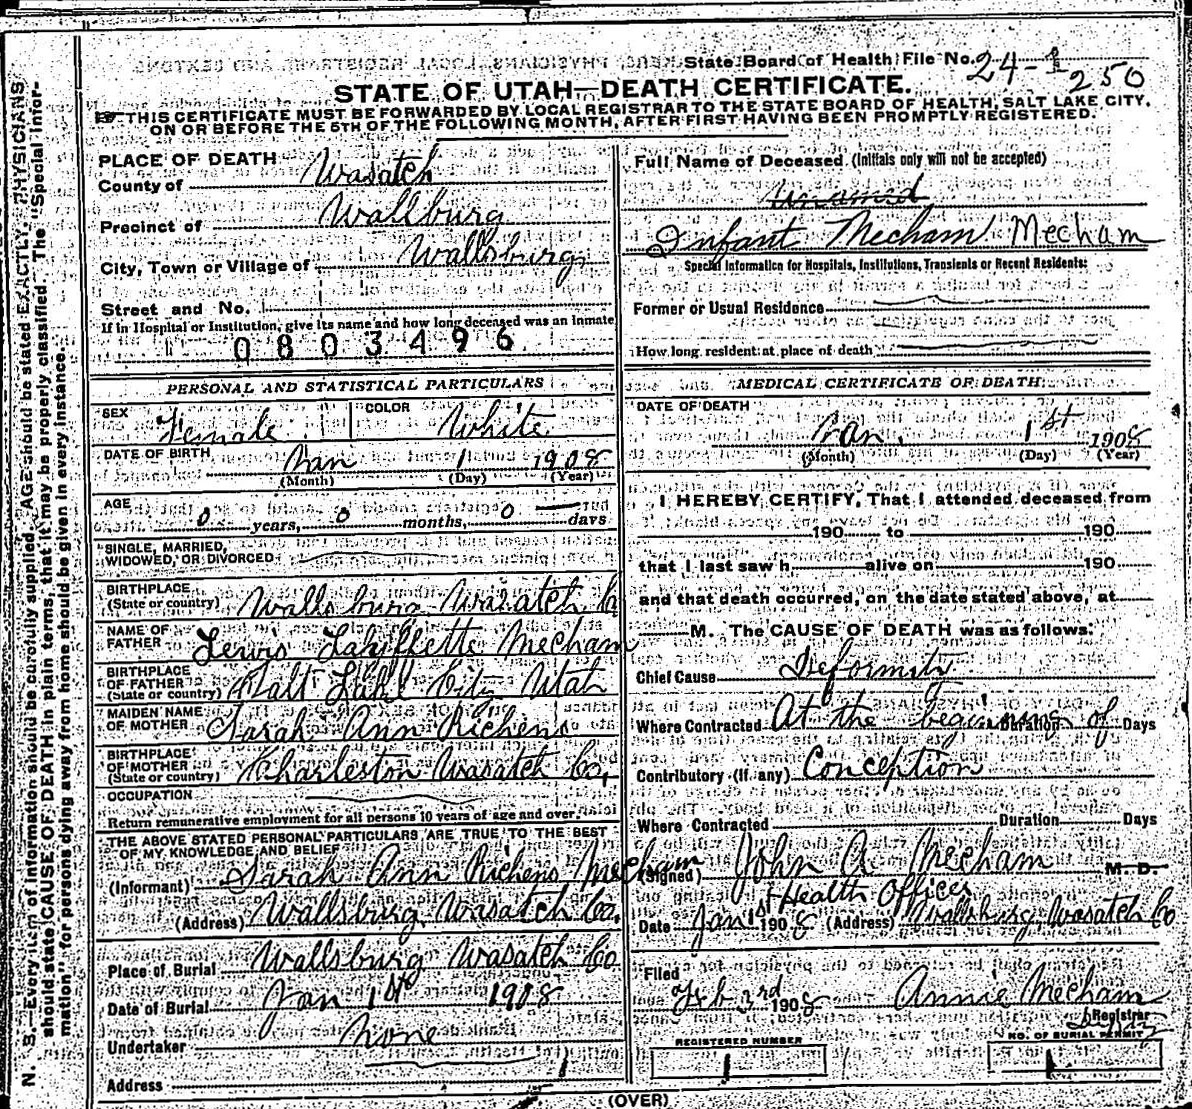 State Board of Health File No. 24-1 250
STATE OF UTAH—DEATH CERTIFICATE.
THIS CERTIFICATE MUST BE FORWARDED BY LOCAL REGISTRAR TO THE STATE BOARD OF HEALTH, SALT LAKE CITY,
ON OR BEFORE THE 5TH OF THE FOLLOWING MONTH, AFTER FIRST HAVING BEEN PROMPTLY REGISTERED.
N. B.—Every item of information should be carefully supplied. AGE should be stated EXACTLY. PHYSICIANS
should state CAUSE OF DEATH in plain terms, that it may be properly classified. The "Special Infor-
mation" for persons dying away from home should be given in every instance.
PLACE OF DEATH
County of Wasatch
Precinct of Wallburg
City, Town or Village of Wallsburg
Street and No.
If in Hospital or Institution, give its name and how long deceased was an inmate
0803496
Full Name of Deceased (Initials only will not be accepted)
unamed
Infant Mecham Mecham
Special Information for Hospitals, Institutions, Transients or Recent Residents:
Former or Usual Residence
How long resident at place of death
PERSONAL AND STATISTICAL PARTICULARS
SEX Female COLOR White
DATE OF BIRTH Jan 1 1908
(Month) (Day) (Year)
AGE 0 years, 0 months, 0 days
SINGLE, MARRIED,
WIDOWED, OR DIVORCED
BIRTHPLACE
(State or country) Wallsburg Wasatch
NAME OF
FATHER Lewis Mecham
BIRTHPLACE
OF FATHER
(State or country) Salt Lake City Utah
MAIDEN NAME
OF MOTHER Sarah Ann Richens
BIRTHPLACE
OF MOTHER
(State or country) Charleston Wasatch Co.
OCCUPATION
Return remunerative employment for all persons 10 years of age and over.
THE ABOVE STATED PERSONAL PARTICULARS ARE TRUE TO THE BEST
OF MY KNOWLEDGE AND BELIEF
(Informant) Sarah Ann Richens Mecham
(Address) Wallsburg Wasatch Co.
Place of Burial Wallsburg Wasatch Co
Date of Burial Jan 1st 1908
Undertaker None
Address
MEDICAL CERTIFICATE OF DEATH
DATE OF DEATH
Jan. 1st 1908
(Month) (Day) (Year)
I HEREBY CERTIFY, That I attended deceased from
190 to 190
that I last saw h alive on 190
and that death occurred, on the date stated above, at
M. The CAUSE OF DEATH was as follows:
Chief Cause Deformity
Where Contracted At the beginning of Duration Days
Contributory (If any) Conception
Where Contracted Duration Days
(Signed) John A Mecham M. D.
Health Officer
Date Jan 1st 1908 (Address) Wallsburg Wasatch Co
Filed
Feb 3rd 1908 Annie Mecham
Registrar
Deputy
REGISTERED NUMBER
1
NO. OF BURIAL PERMIT
1
(OVER)